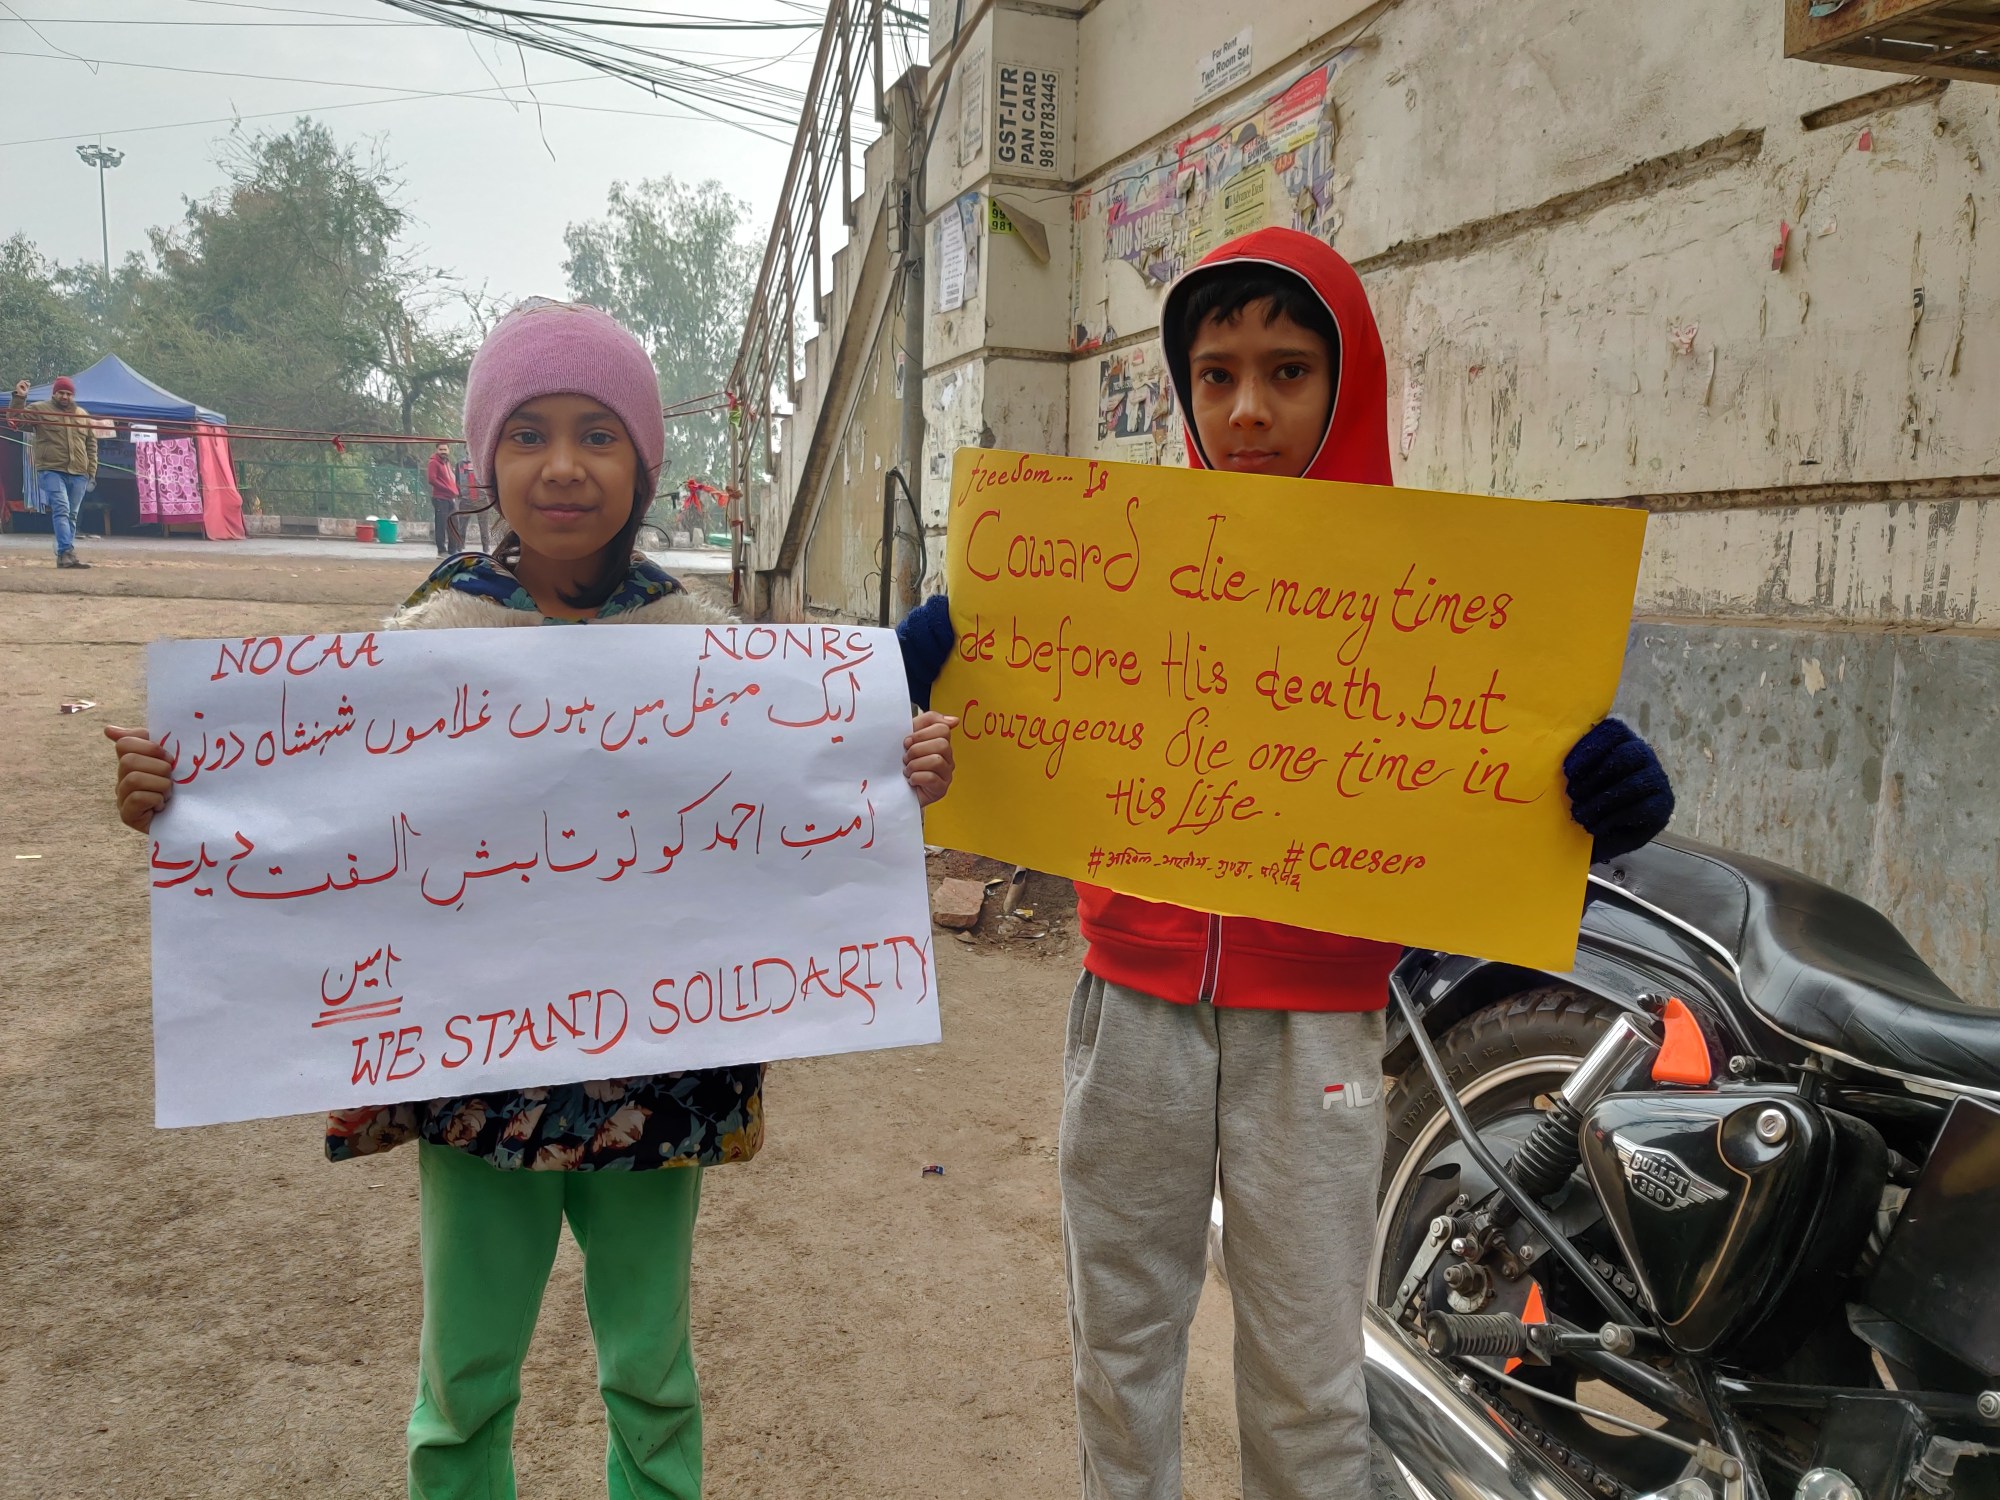 NOCAA NONRC
ایک مہفل میں ہوں غلاموں شہنشاہ دونوں
اُمتِ احمد کو تو تابشِ الفت دیدے
امین
WE STAND SOLIDARITY
freedom... Is
Coward die many times
de before His death, but
Courageous die one time in
His Life.
#अखिल_भारतीय_गुण्डा_परिषद #Caeser
GST-ITR
PAN CARD
9818783445
For Rent
Two Room Set
Advance Excel
FILA
BULLET
350